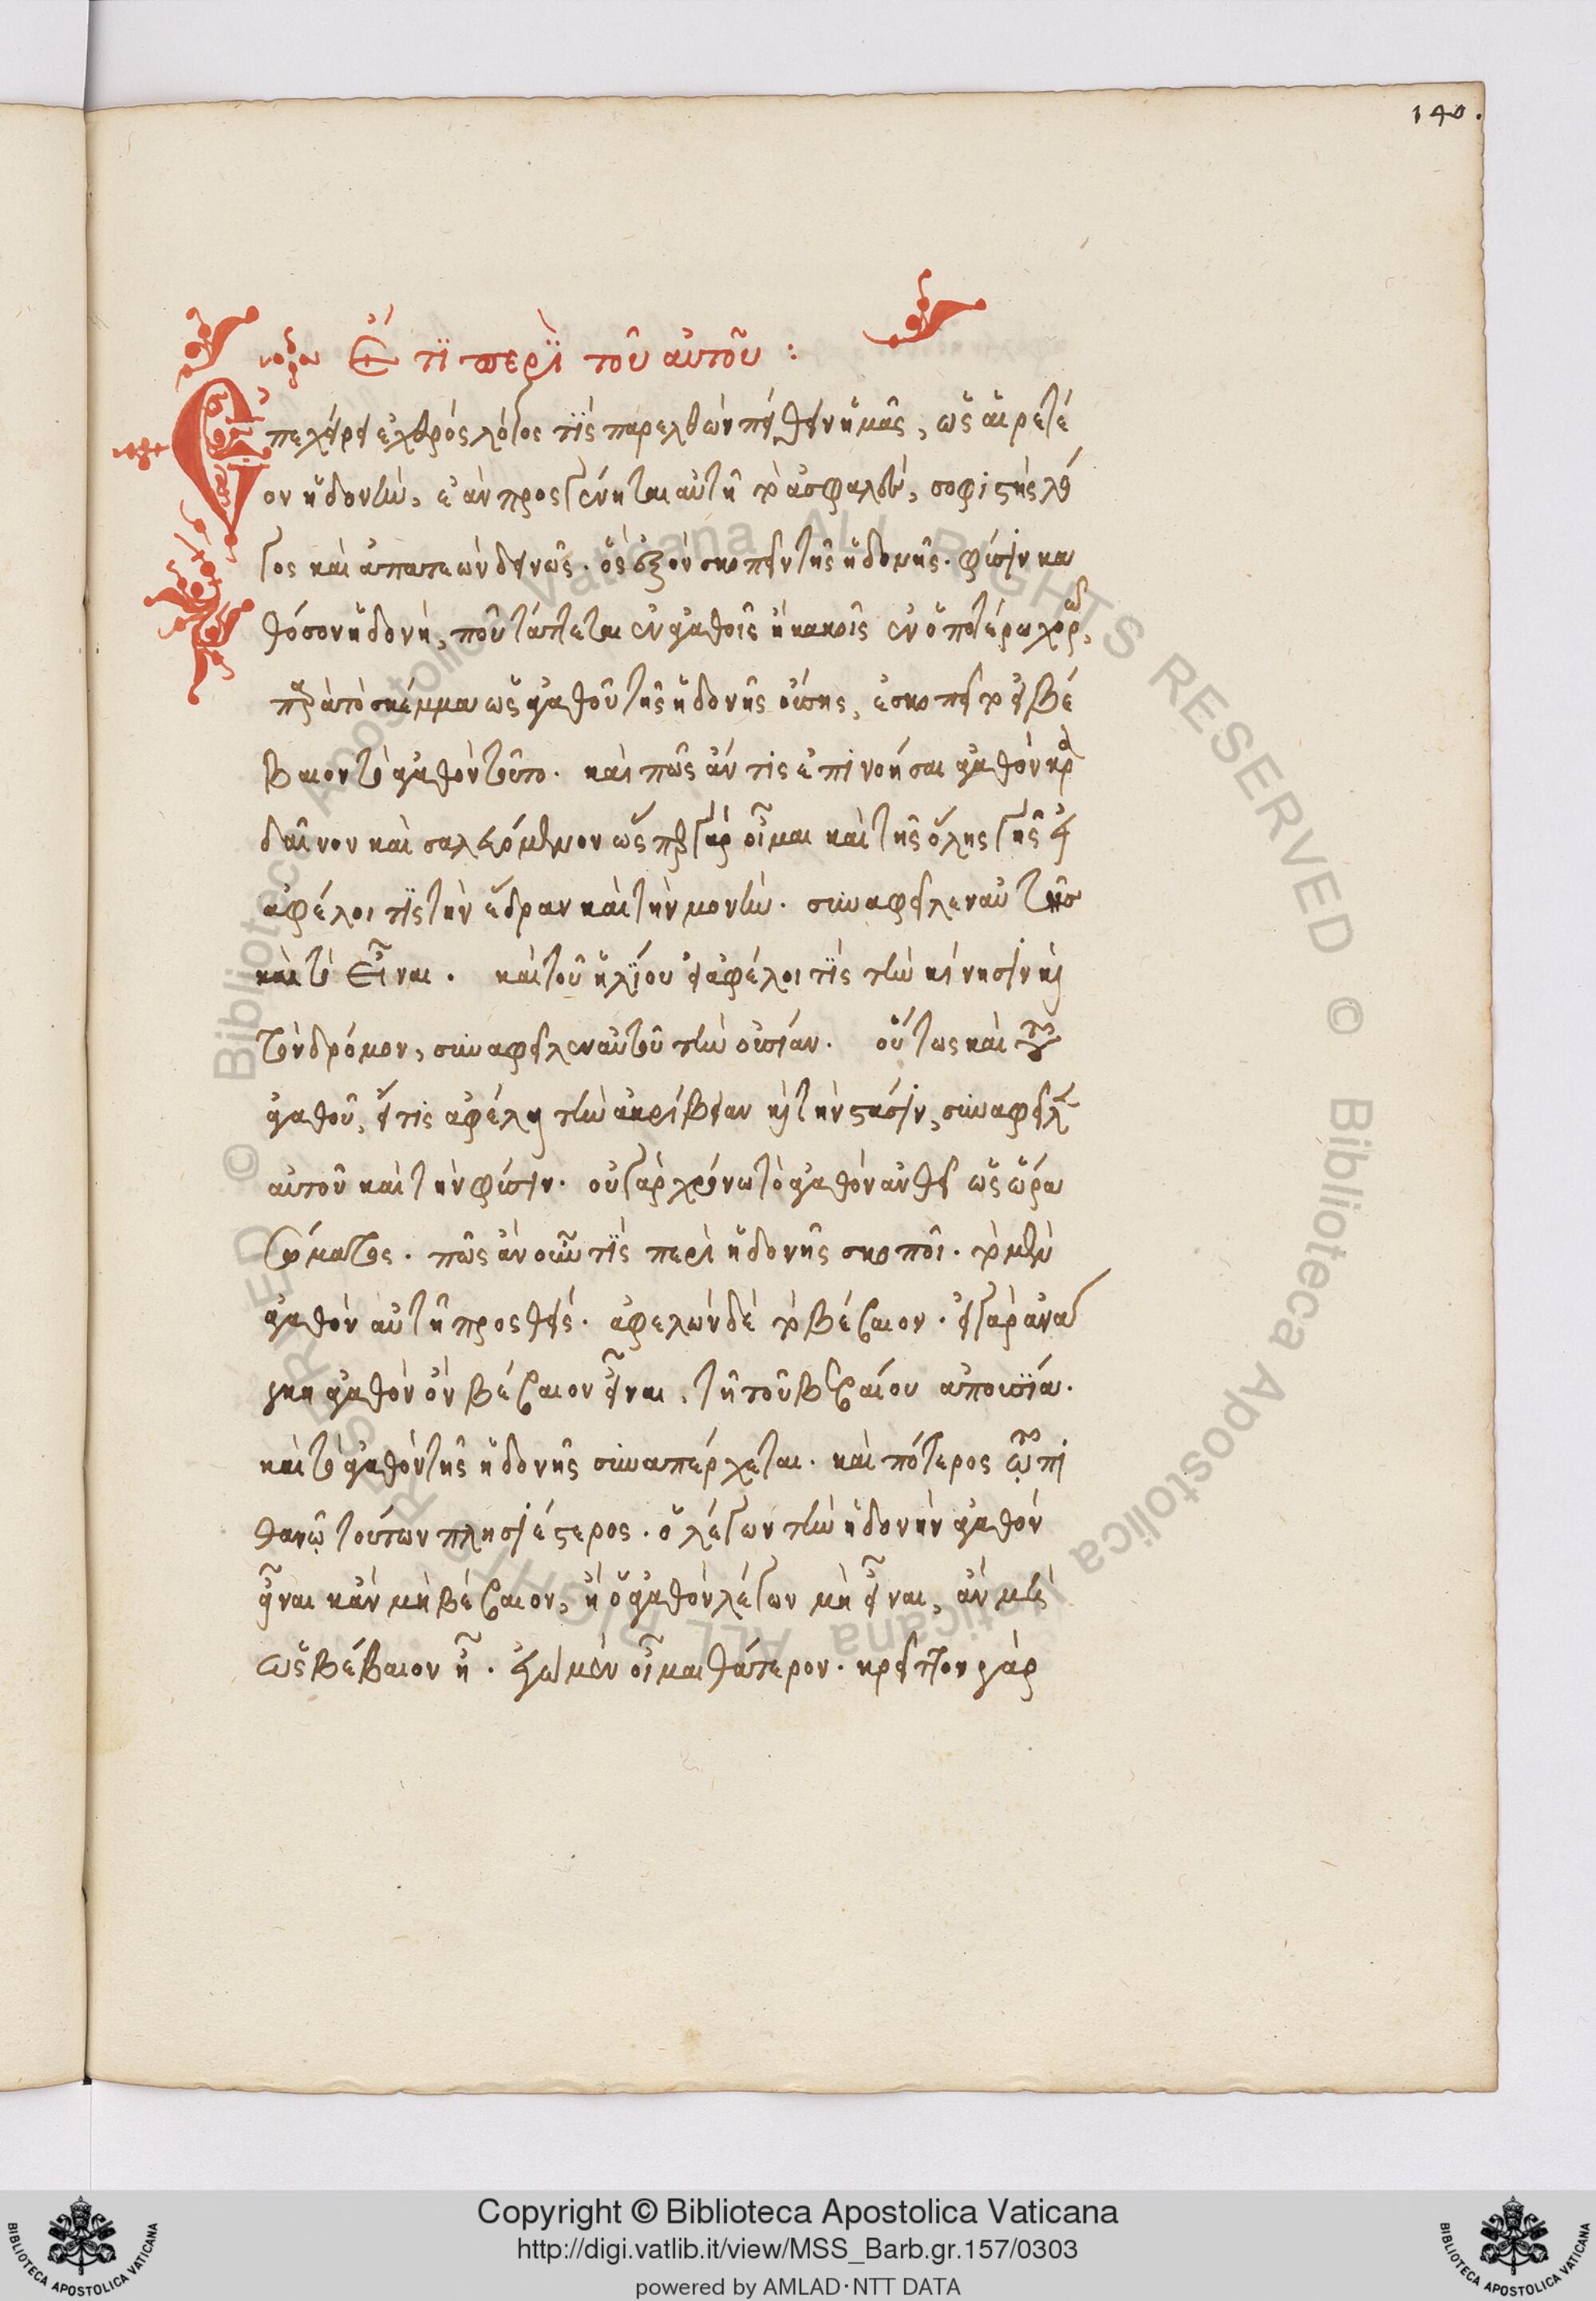 140.
Ἔτι περὶ τοῦ αὐτοῦ :
Ἐπεχείρει ἐχθρός λόγος τίς παρελθών πείθειν ἡμᾶς, ὡς αἱρετέ
ον ἡδονὴν, ἐὰν προσγένηται αὐτῆ τὸ ἀσφαλὲς, σοφιστὴς λό
γος καὶ ἀπατεὼν δεινῶς. ὃς ἐξὸν σκοπεῖν τῆς ἡδονῆς φύσιν κα
θόσον ἡδονὴ, ποῦ τάττεται ἐν ἀγαθοῖς ἢ κακοῖς ἐν ὁποτέρω
σκέμμα ὡς ἀγαθοῦ τῆς ἡδονῆς οὔσης, ἐσκόπει τὸ εἰ βέ
βαιον τὸ ἀγαθόν τοῦτο. καὶ πῶς ἄν τις ἐπινοήσαι ἀγαθὸν κρα
δαῖνον καὶ σαλευόμενον ὥσπερ γὰρ οἶμαι καὶ τῆς ὅλης γῆς εἰ
ἀφέλοι τίς τὴν ἕδραν καὶ τὴν μονὴν. συναφεῖλεν αὐτῆς
καὶ τὸ εἶναι. καὶ τοῦ ἡλίου εἰ ἀφέλοι τίς τὴν κίνησιν καὶ
τὸν δρόμον, συναφεῖλεν αὐτοῦ τὴν οὐσίαν. οὕτως καὶ τοῦ
ἀγαθοῦ, εἴ τις ἀφέλη τὴν ἀκρίβειαν καὶ τὴν στάσιν, συναφεῖλεν
αὐτοῦ καὶ τὴν φύσιν. οὐ γὰρ χρόνω τὸ ἀγαθὸν ἀνθεῖ ὡς ὥρα
σώματος. πῶς ἂν οὖν τίς περὶ ἡδονῆς σκοποῖ. τὸ μὲν
ἀγαθὸν αὐτῆ προσθείς. ἀφελὼν δὲ τὸ βέβαιον. εἰ γὰρ ἀνά
γκη ἀγαθὸν ὂν βέβαιον εἶναι, τῆ τοῦ βεβαίου ἀπουσία.
καὶ τὸ ἀγαθὸν τῆς ἡδονῆς συναπέρχεται. καὶ πότερος ὦ πι
θανῷ τούτων πλησιέστερος. ὁ λέγων τὴν ἡδονὴν ἀγαθὸν
εἶναι κἂν μὴ βέβαιον, ἢ ὁ ἀγαθὸν λέγων μὴ εἶναι, ἂν μὲν
ὡς βέβαιον ἦ. ἐγὼ μὲν οἶμαι θάτερον. κρεῖττον γὰρ
Copyright © Biblioteca Apostolica Vaticana
http://digi.vatlib.it/view/MSS_Barb.gr.157/0303
powered by AMLAD·NTT DATA
BIBLIOTECA APOSTOLICA VATICANA
BIBLIOTECA APOSTOLICA VATICANA